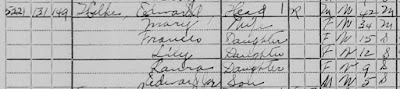 5221 131 149 Wilkes, Edward, Head 1 R M W 42 M
Mary Wife F W 34 M
Francis Daughter F W 15 S
Lily Daughter F W 12 S
Laura Daughter F W 9 S
Son M W 5 S